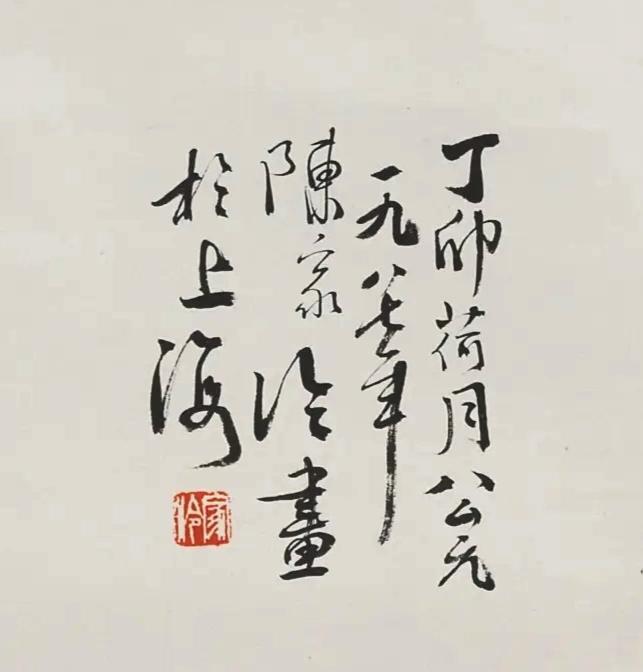 丁卯荷月公元
一九八七年
陳家泠畫
於上海
家泠